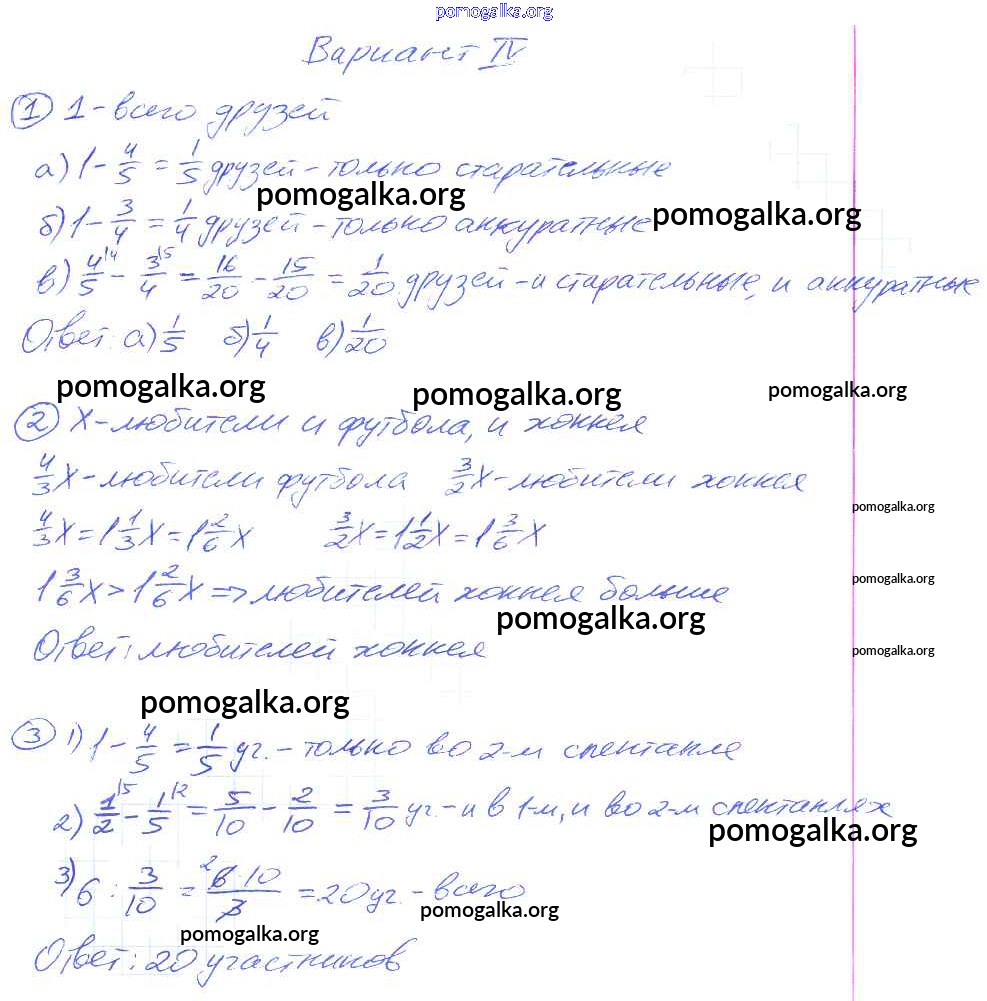 pomogalka.org
Вариант IV
① 1 - всего друзей
а) 1 - 4/5 = 1/5 друзей - только старательные
pomogalka.org
б) 1 - 3/4 = 1/4 друзей - только аккуратные
pomogalka.org
в) 4/5 - 3/4 = 16/20 - 15/20 = 1/20 друзей - и старательные, и аккуратные
Ответ: а) 1/5 б) 1/4 в) 1/20
pomogalka.org pomogalka.org pomogalka.org
② х - любители и футбола, и хоккея
4/3 х - любители футбола 3/2 х - любители хоккея
pomogalka.org
4/3 х = 1 1/3 х = 1 2/6 х 3/2 х = 1 1/2 х = 1 3/6 х
pomogalka.org
1 3/6 х > 1 2/6 х => любителей хоккея больше
pomogalka.org
Ответ: любителей хоккея
pomogalka.org
pomogalka.org
③ 1) 1 - 4/5 = 1/5 уч. - только во 2-м спектакле
2) 1/2 - 1/5 = 5/10 - 2/10 = 3/10 уч. - и в 1-м, и во 2-м спектаклях
pomogalka.org
3) 6 : 3/10 = 6·10/3 = 20 уч. - всего
pomogalka.org
pomogalka.org
Ответ: 20 участников